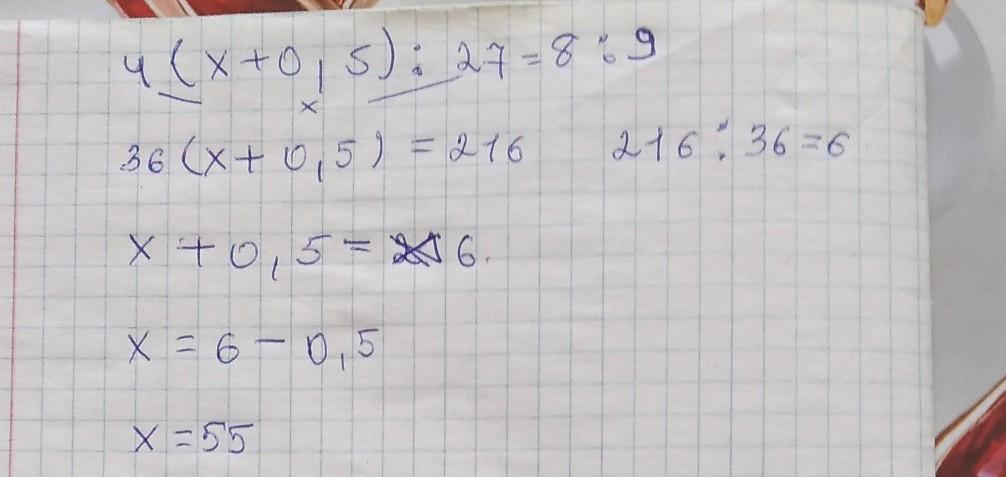 4(x+0,5):27=8:9
x
36(x+0,5)=216 216:36=6
x+0,5=6.
x=6-0,5
x=55